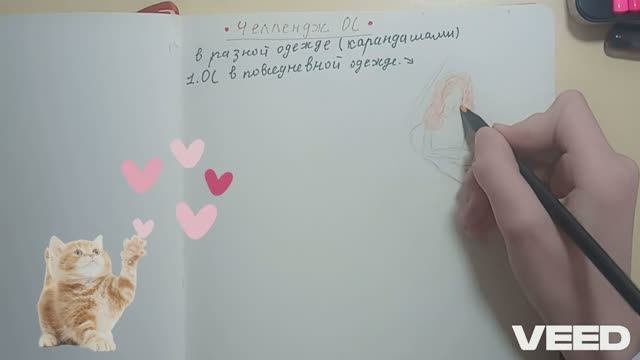 • Челлендж ОС •
в разной одежде (карандашами)
1. ОС в повседневной одежде.↘
VEED